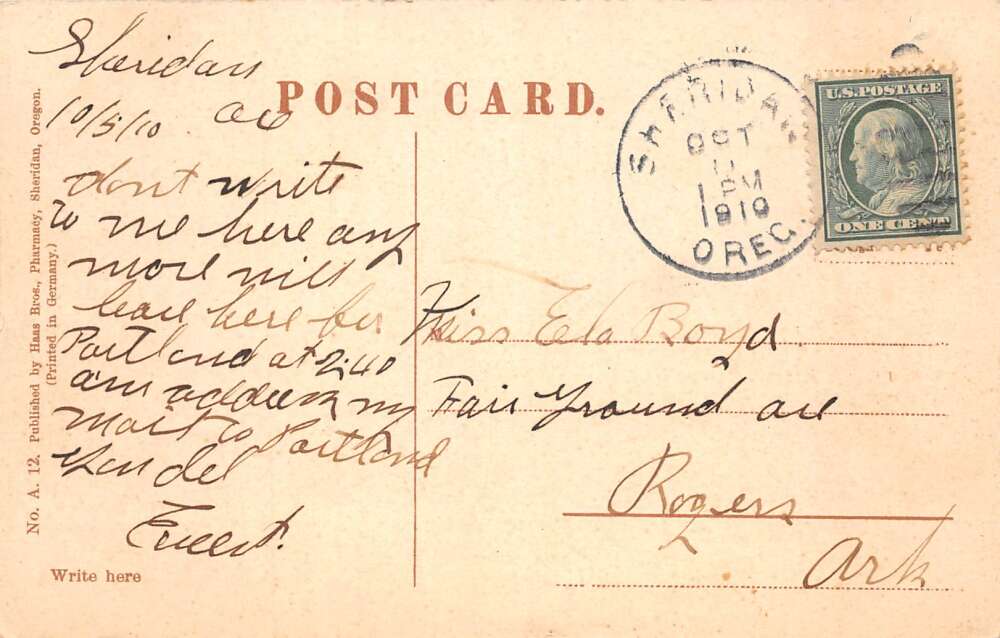 POST CARD.
Sheridan
10/5/10 Ore
dont write
to me here any
more will
leave here for
Portland at 2:40
am address my
mail to Portland
Gen del
Write here
No. A. 12. Published by Haas Bros., Pharmacy, Sheridan, Oregon.
(Printed in Germany.)
SHERIDAN
OCT
PM
1910
OREG.
U.S. POSTAGE
ONE CENT
Miss Boyd
Fair Ground ave
Rogers
Ark